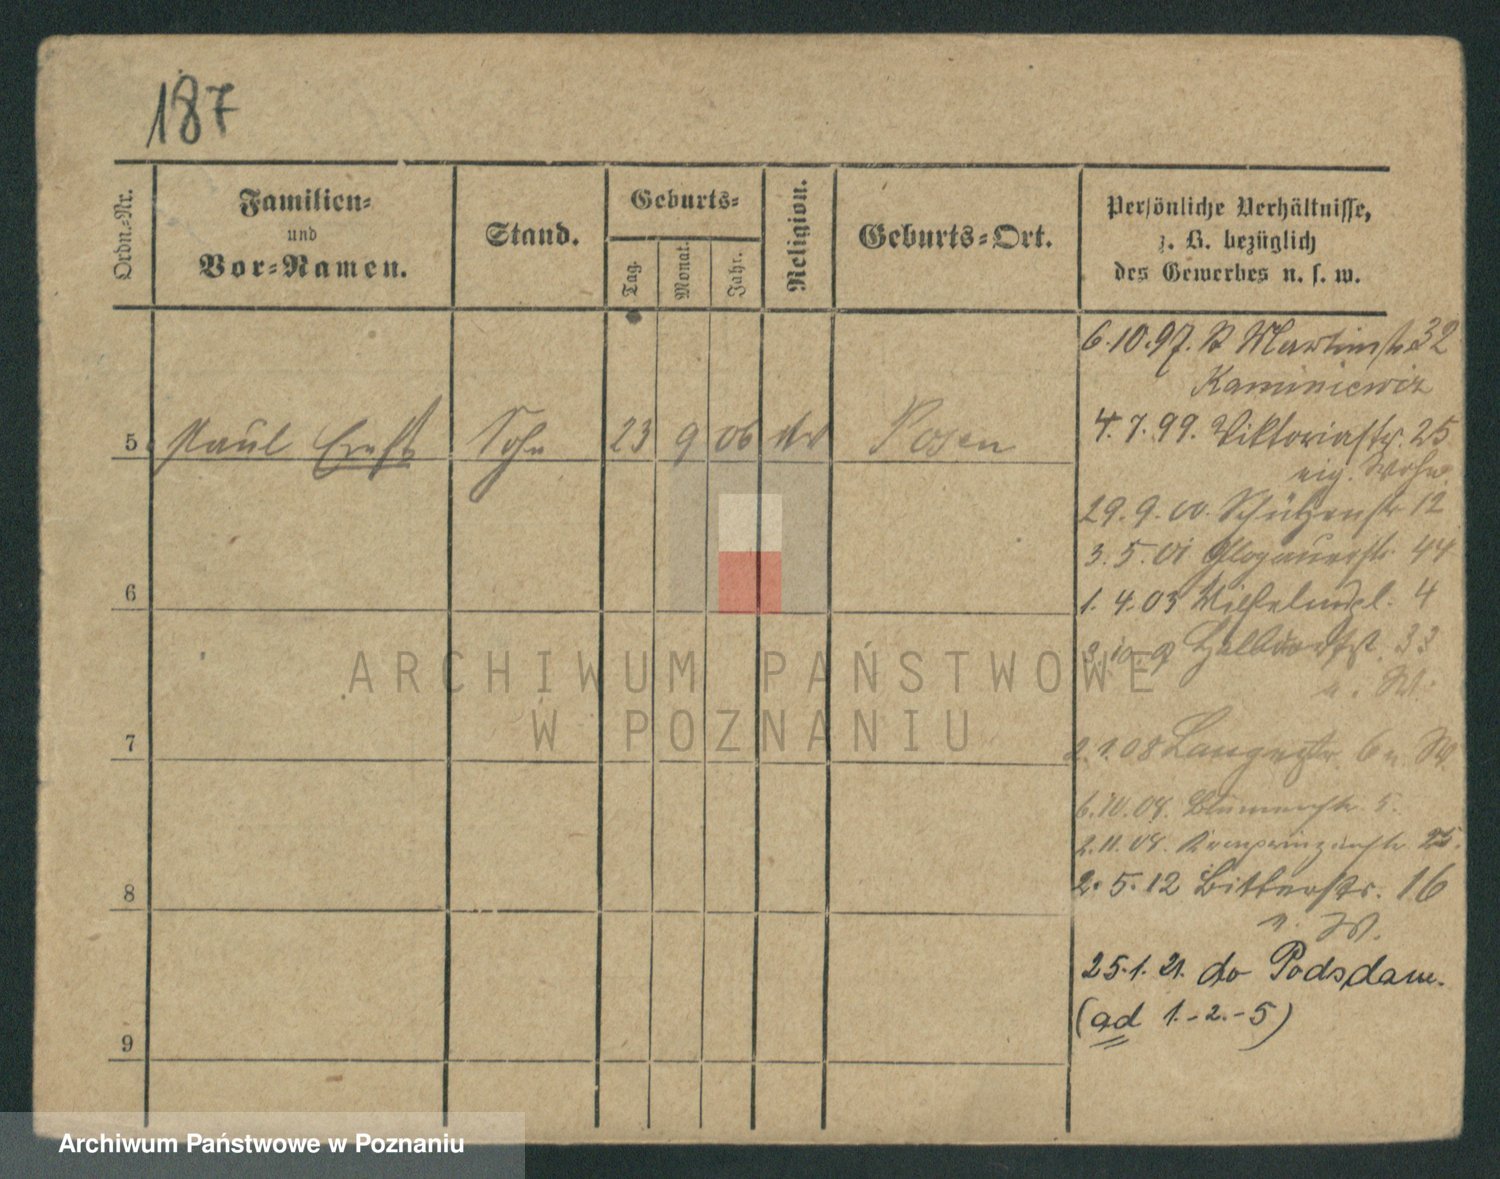 187
Ordn.-Nr.
Familien-
und
Vor-Namen.
Stand.
Geburts-
Tag.
Monat.
Jahr.
Religion.
Geburts-Ort.
Persönliche Verhältnisse,
z. B. bezüglich
des Gewerbes u. s. w.
6.10.97. St Martinstr. 32
Kaminiewiz
4.7.99. Viktoriastr. 25
eig. Wohn.
5 Paul Ernst Sohn 23 9 06 Posen
29.9.00. Schützenstr 12
3.5.01 Glogauerstr. 44
6
1.4.03 Wilhelmspl. 4
33
7
2.1.08 Langestr. 6 e. W.
6.10.08. Blumenstr 5.
2.11.08. Kronprinzenstr. 25.
8
2.5.12 Bitterstr. 16
e. W.
25.1.21. do Podsdam.
(ad 1.-2.-5)
9
ARCHIWUM PAŃSTWOWE
W POZNANIU
Archiwum Państwowe w Poznaniu